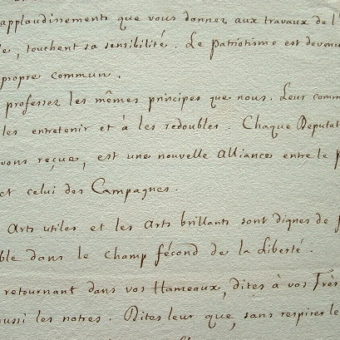 applaudissements que vous donnez aux travaux de l'
touchent sa sensibilité. Le patriotisme est devenu
propre commun.
professez les mêmes principes que nous. Leur comm
les entretenir et à les redoubler. Chaque Deputat
vons reçue, est une nouvelle Alliance entre le p
et celui des Campagnes.
Arts utiles et les Arts brillants sont dignes de
ble dans le Champ fécond de la Liberté.
retournant dans vos Hameaux, dites à vos Frè
ussi les notres. Dites leur que, sans respirer le